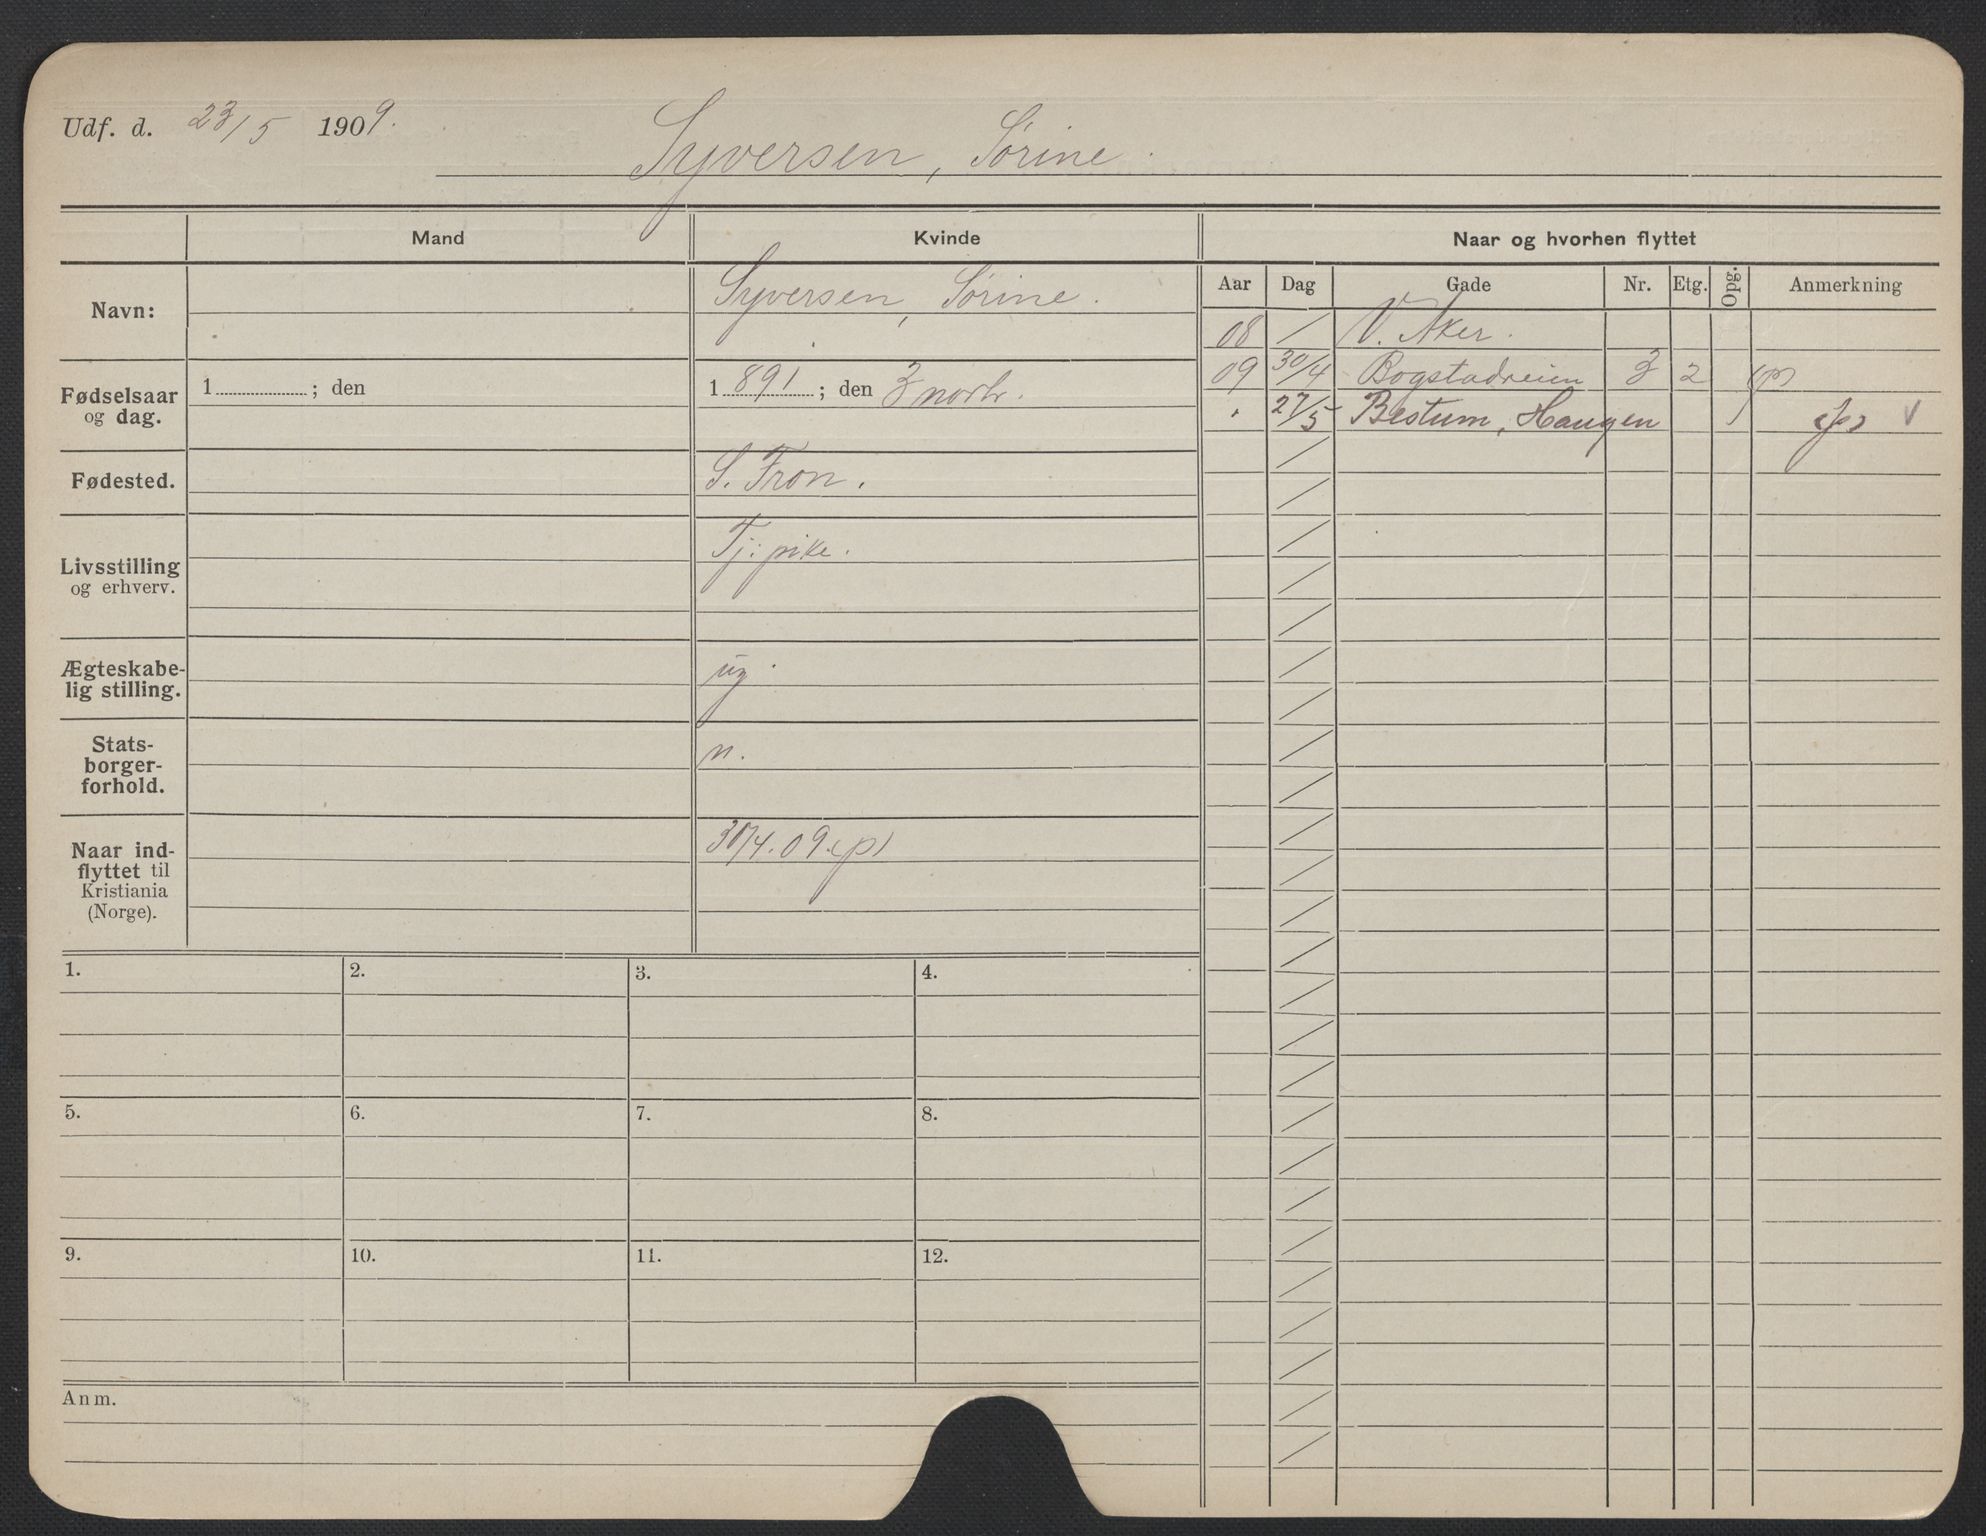 Udf. d. 23/5 1909.
Syversen, Sørine.
Mand Kvinde Naar og hvorhen flyttet
Aar Dag Gade Nr. Etg. Opg. Anmerkning
Navn: Syversen, Sørine.
08 V. Aker.
09 30/4 Bogstadveien 3 2 (p)
" 27/5 Bestum, Haugen (p) V
Fødselsaar
og dag.
1 ; den
1 891 ; den 3 novbr.
Fødested. S. Fron.
Livsstilling
og erhverv.
Tj: pike.
Ægteskabe-
lig stilling.
ug.
Stats-
borger-
forhold.
n.
Naar ind-
flyttet til
Kristiania
(Norge).
30/4. 09. (p)
1. 2. 3. 4.
5. 6. 7. 8.
9. 10. 11. 12.
Anm.